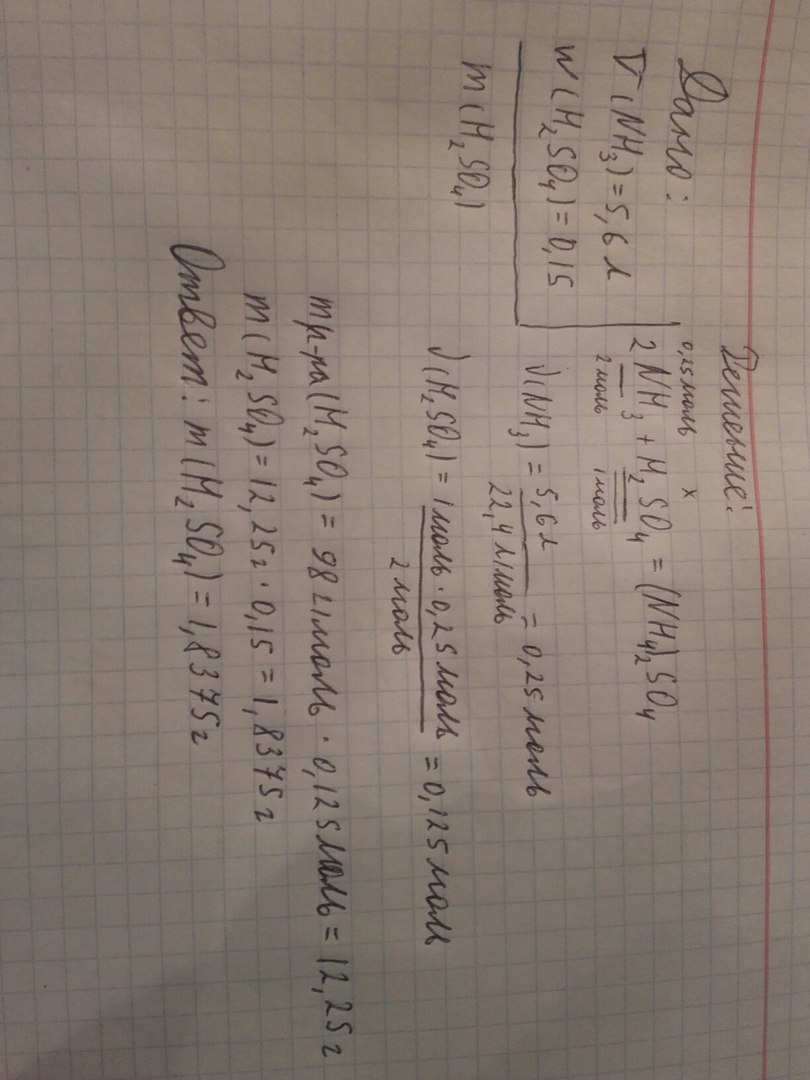 Дано:
V(NH₃)=5,6 л
w(H₂SO₄)=0,15
m(H₂SO₄)
Решение:
0,25 моль x
2NH₃ + H₂SO₄ = (NH₄)₂SO₄
2 моль 1 моль
√(NH₃) = 5,6 л / 22,4 л/моль = 0,25 моль
√(H₂SO₄) = 1 моль · 0,25 моль / 2 моль = 0,125 моль
m р-ра(H₂SO₄) = 98 г/моль · 0,125 моль = 12,25 г
m(H₂SO₄) = 12,25г · 0,15 = 1,8375 г
Ответ: m(H₂SO₄) = 1,8375 г